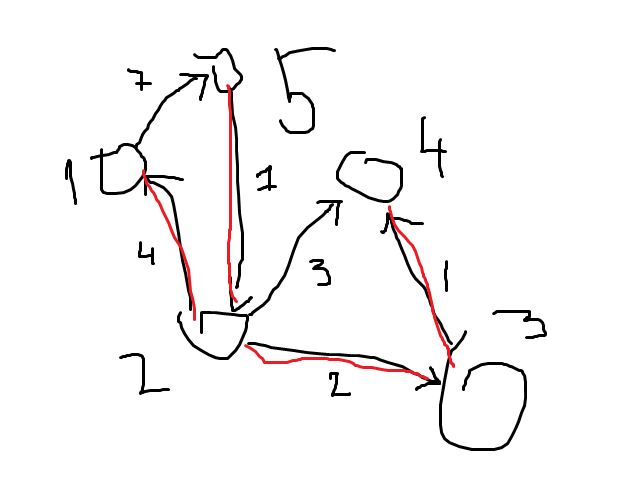 7
5
4
1
1
4
3
1
3
2
2